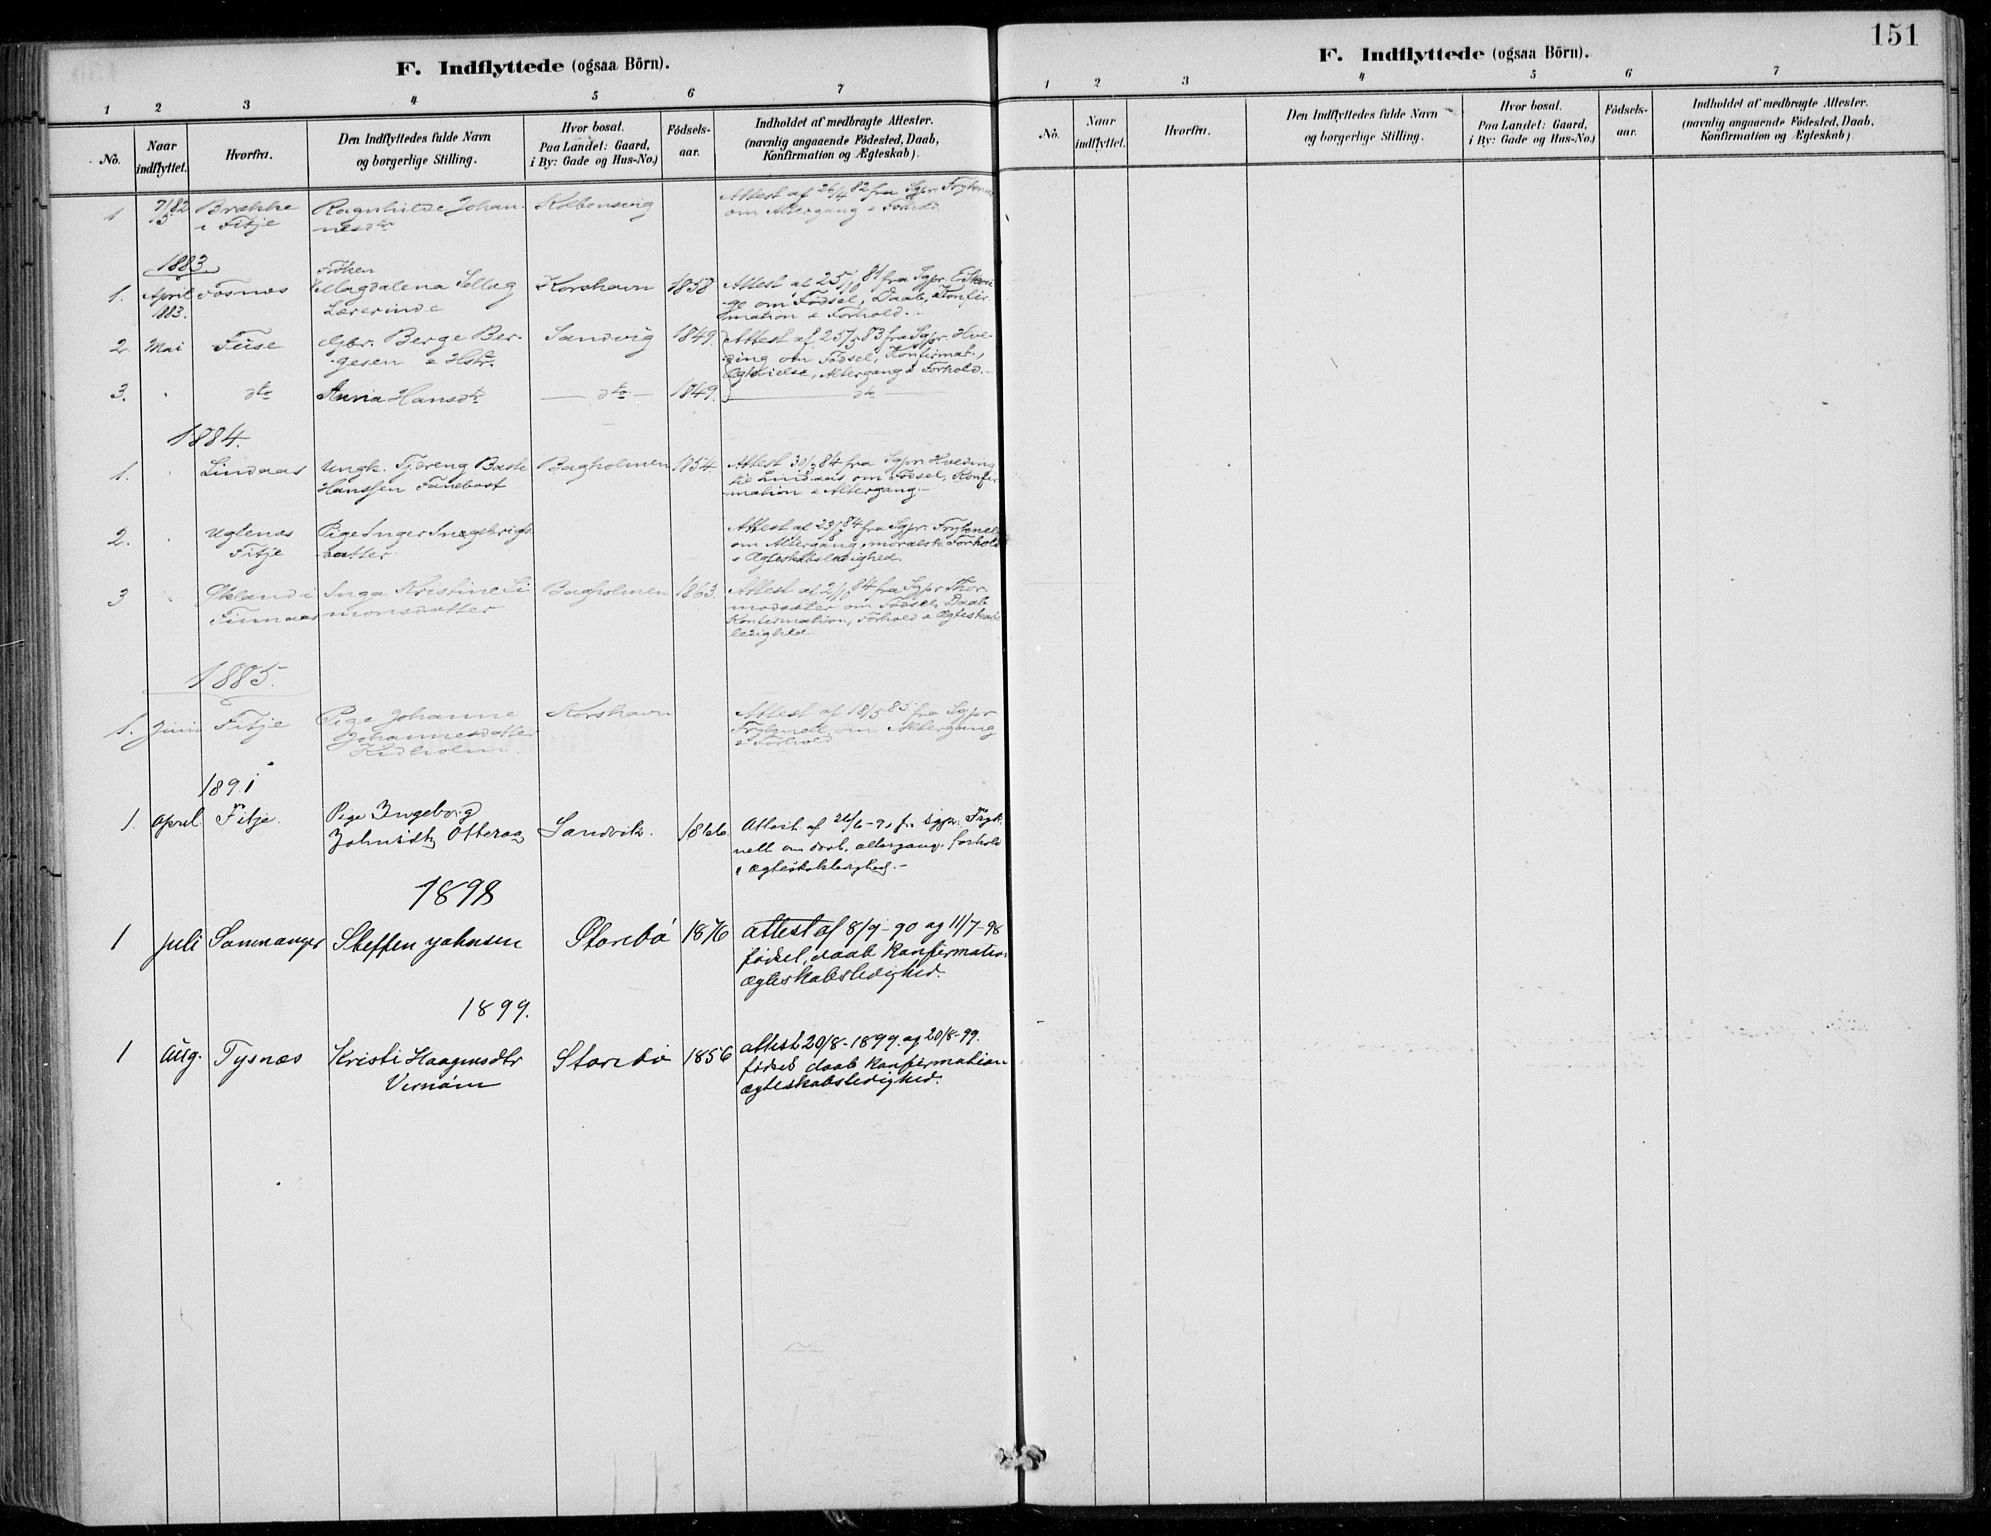 F. Indflyttede (ogsaa Börn).
1 2 3 4 5 6 7
No. Naar indflyttet. Hvorfra. Den Indflyttedes fulde Navn og borgerlige Stilling. Hvor bosat. Paa Landet: Gaard, i By: Gade og Hus-No.) Födsels-aar. Indholdet af medbragte Attester. (navnlig angaaende Födested, Daab, Konfirmation og Ægteskab).
1 7/5 82 Brække Ragnhilde Johan- Kolbensvig Attest af 26/4 82 fra Sgpr. Fryknel
i Fitje nesdtr om Altergang & Forhold
1883.
Frøken
1. April Fosnæs Magdalena Sellæg Korshavn 1858 Attest af 25/10 81 fra Sgpr.
1883. Lærerinde ge om Fødsel, Daab, Konfir-
mation & Forhold.
2. Mai Fuse Gbr. Berge Ber- Sandvig 1849. Attest af 25/5 83 fra Sgpr. Hve-
gesen & Hstr. ding om Fødsel, Konfirmat.,
Ægtevielse, Altergang & Forhold.
3. " dto Anna Hansdtr — dto — 1849. — dto —
1884.
1. " Lindaas Ungk. Baste Bagholmen 1854. Attest 30/3 84 fra Sgpr. Hveding
Hanssen Fanebost til Lindaas om Fødsel, Konfir-
mation & Altergang.-
2. " Uglenæs Pige Inger Ingebrigts- Attest af 23/ 84 fra Sgpr. Fryknel
Fitje datter om Altergang, moralsk Forhold
& Ægteskabsledighed.
3 " Økland i Inga Kristine Si- Bagholmen 1863. Attest af 2/10 84 fra Sgpr Thor-
Finnaas monsdatter modsæter om Fødsel, Daab
Konfirmation, Forhold & Ægteskabs-
ledighed.
1885.
1. Juni Fitje Pige Johanne Korshavn Attest af 18/5 85 fra Sgpr
Johannesdatter Fryknell om Altergang
Kidholm & Forhold
1891
1. April. Fitje. Pige Ingeborg Sandvik. 1866. Attest af 26/6-91 fr. sgpr. Fryk-
Johnsdtr Otterøy nell om daab, altergang. forhold
& ægteskabsledighed.-
1898
1 juli Sammanger Steffen Johnsen Storebø 1876 attest af 8/9-90 og 11/7-98
fødsel, daab konfirmation
ægteskabsledighed.
1899.
1 Aug. Tysnæs Kristi Haagensdtr Storebø 1856 attest 20/8-1899. og 20/8-99.
Vernøm fødsel daab konfirmation
ægteskabsledighed.
151
F. Indflyttede (ogsaa Börn).
1 2 3 4 5 6 7
No. Naar indflyttet. Hvorfra. Den Indflyttedes fulde Navn og borgerlige Stilling. Hvor bosat. Paa Landet: Gaard, i By: Gade og Hus-No.) Födsels-aar. Indholdet af medbragte Attester. (navnlig angaaende Födested, Daab, Konfirmation og Ægteskab).